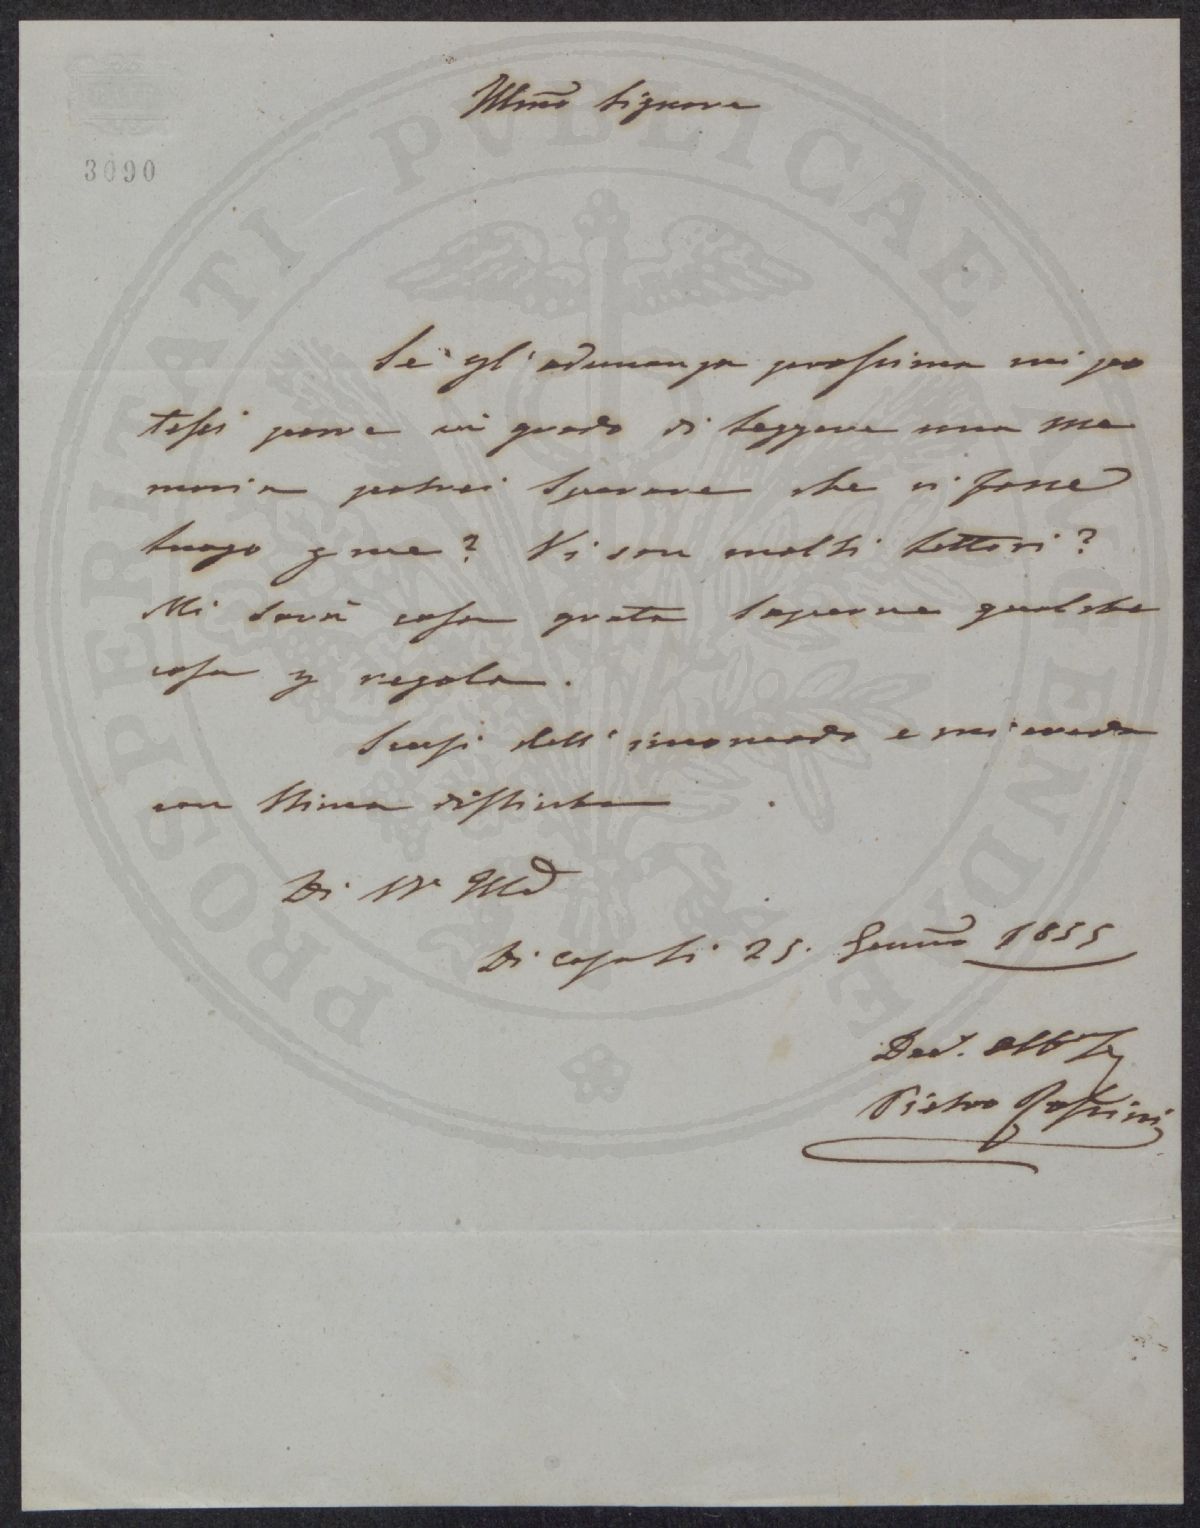 Illmo Signore
3090
Se gl'adunanza prossima mi po
tessi porre in grado di leggere una me
moria potrei sperare che vi fosse
luogo p me? Vi son molti lettori?
Mi sarà cosa grata saperne qualche
cosa p regola.
Scusi dell'incomodo e mi creda
con stima distinta
Di VS. Illma
Di Casa li 25. Gennro 1855
Dev. Obb
Pietro
PROSPERITATI PVBLICAE AVGENDAE